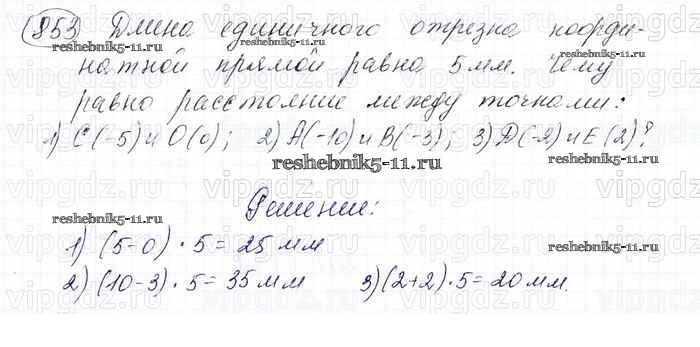 853 Длина единичного отрезка коорди-
reshebnik5-11.ru reshebnik5-11.ru
натной прямой равна 5 мм. Чему
равно расстояние между точками:
1) C(-5) и O(0); 2) A(-10) и B(-3); 3) D(-2) и E(2)?
reshebnik5-11.ru
vipgdz.ru vipgdz.ru vipgdz.ru
reshebnik5-11.ru Решение:
1) (5-0) · 5 = 25 мм
reshebnik5-11.ru
2) (10-3) · 5 = 35 мм 3) (2+2) · 5 = 20 мм.
reshebnik5-11.ru